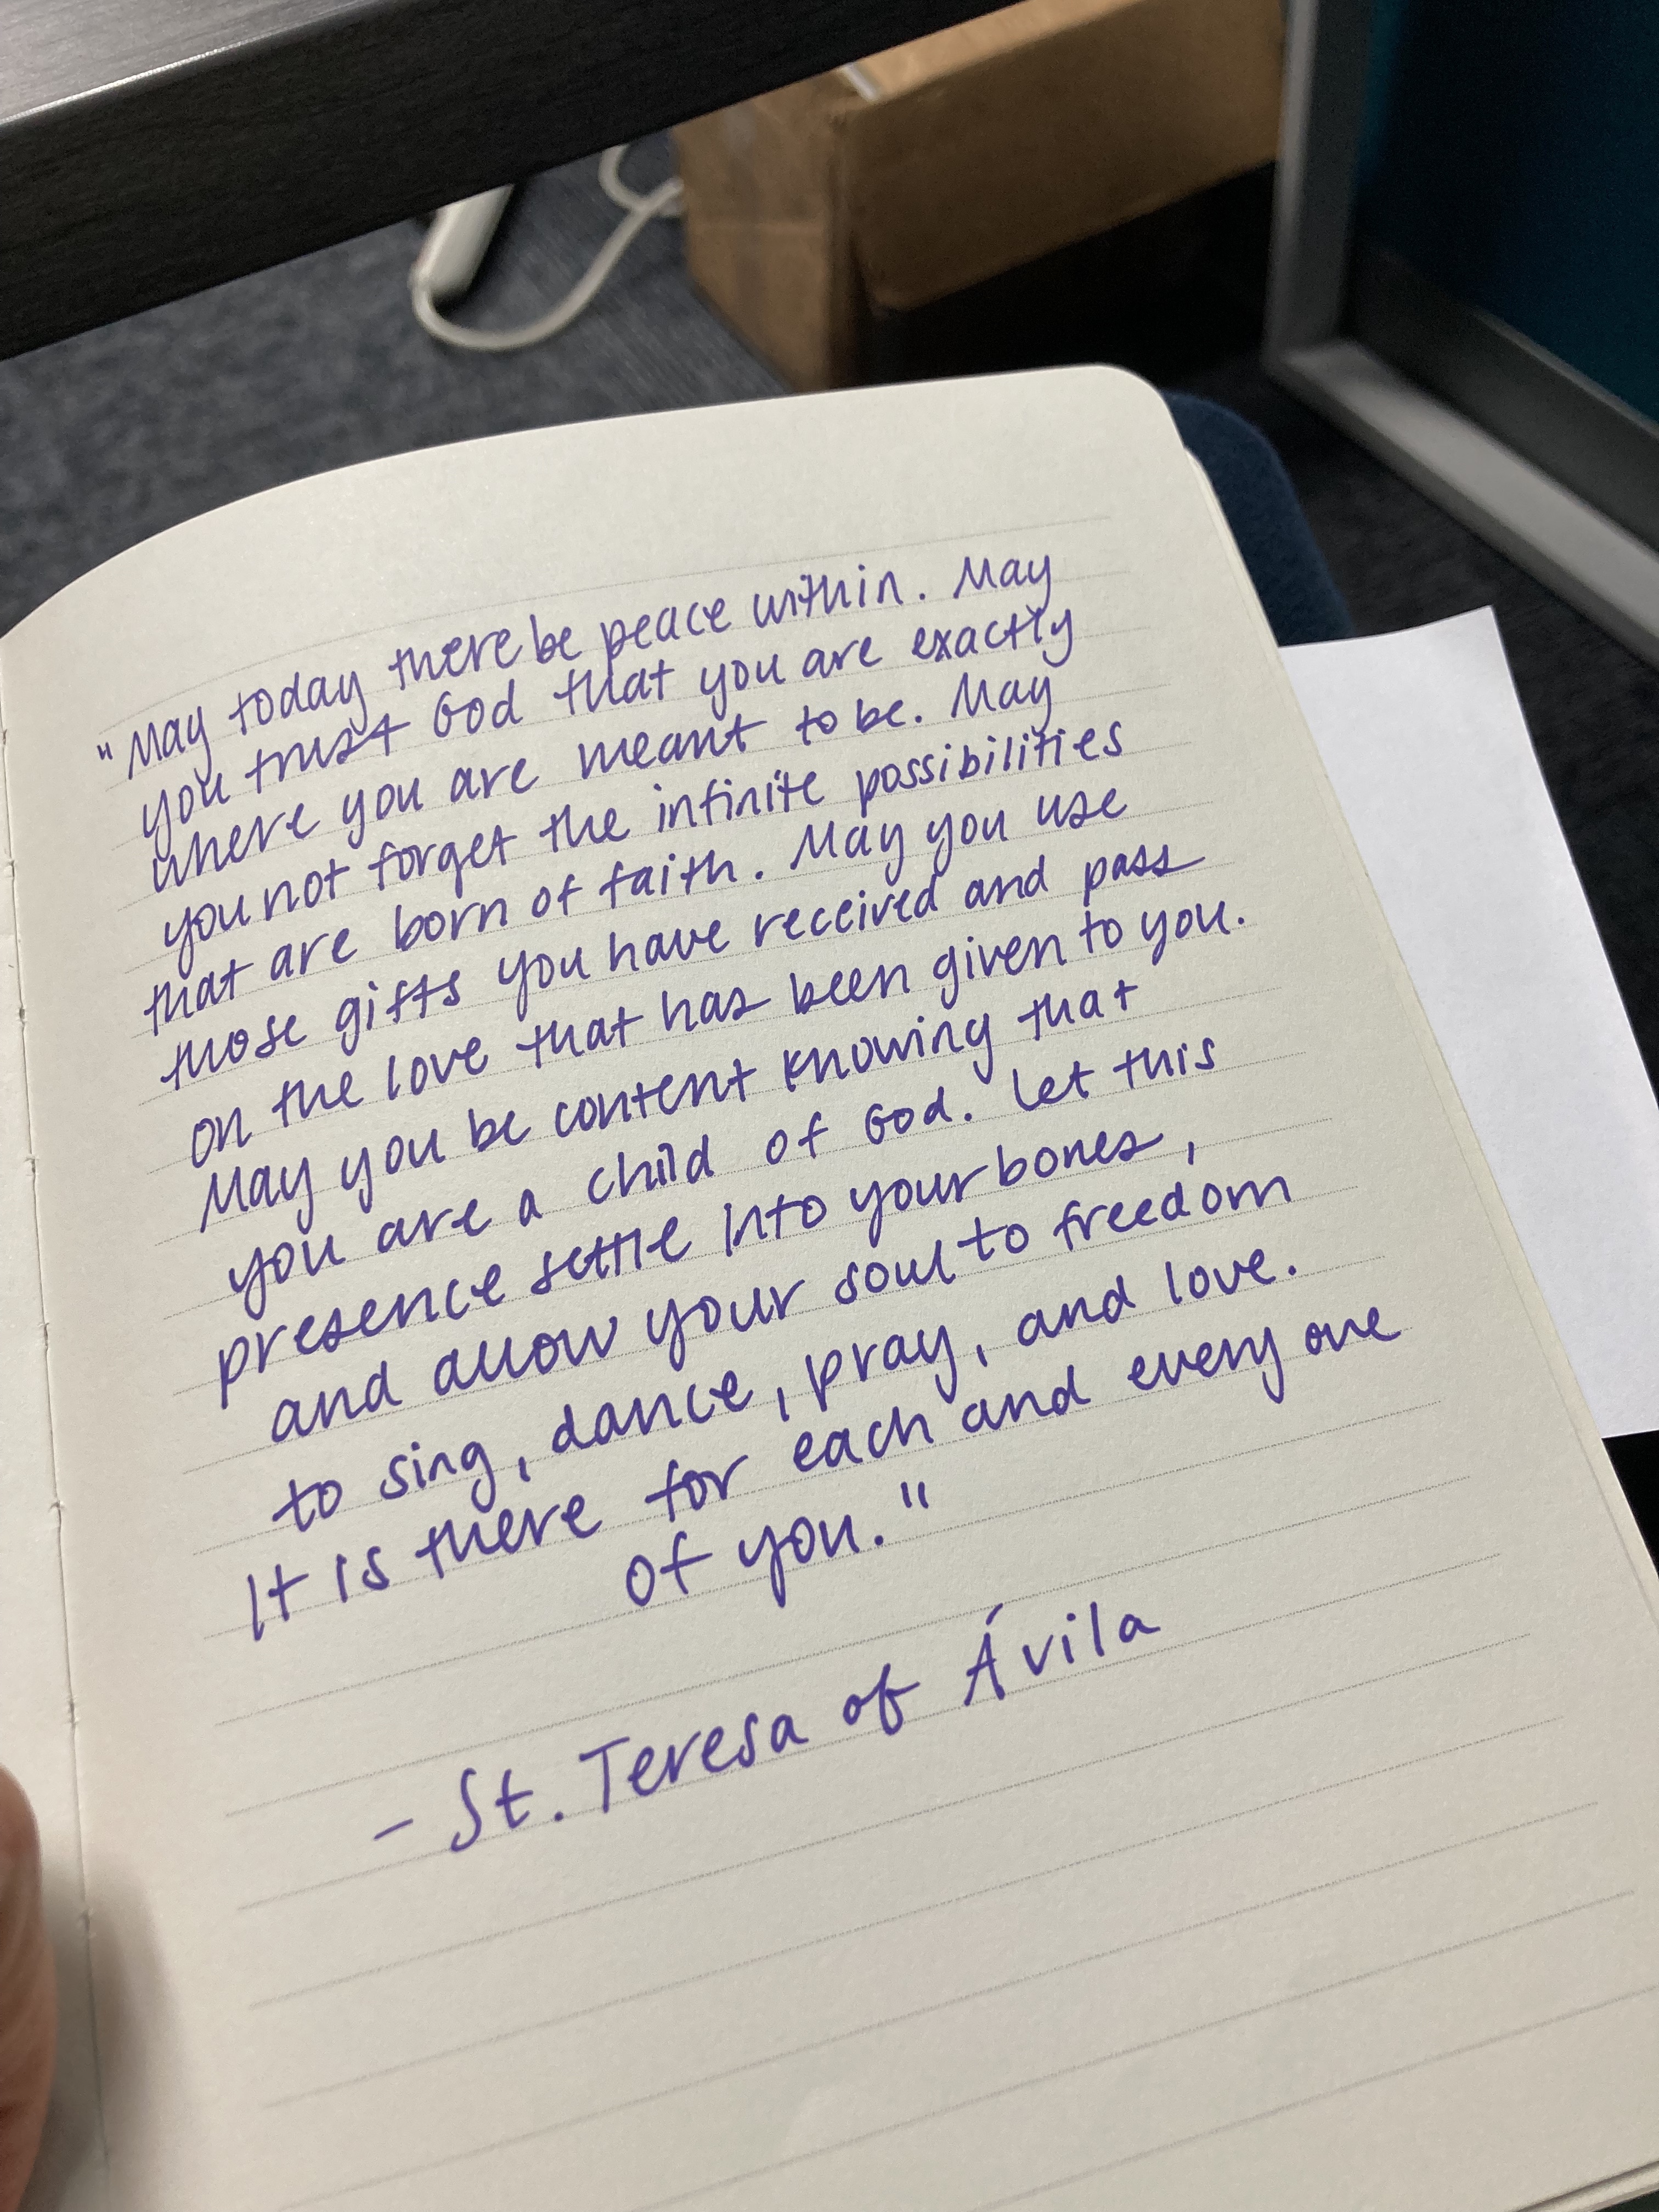 "May today there be peace within. May
you trust God that you are exactly
where you are meant to be. May
you not forget the infinite possibilities
that are born of faith. May you use
those gifts you have received and pass
on the love that has been given to you.
May you be content knowing that
you are a child of God. Let this
presence settle into your bones,
and allow your soul to freedom
to sing, dance, pray, and love.
It is there for each and every one
of you."
- St. Teresa of Ávila